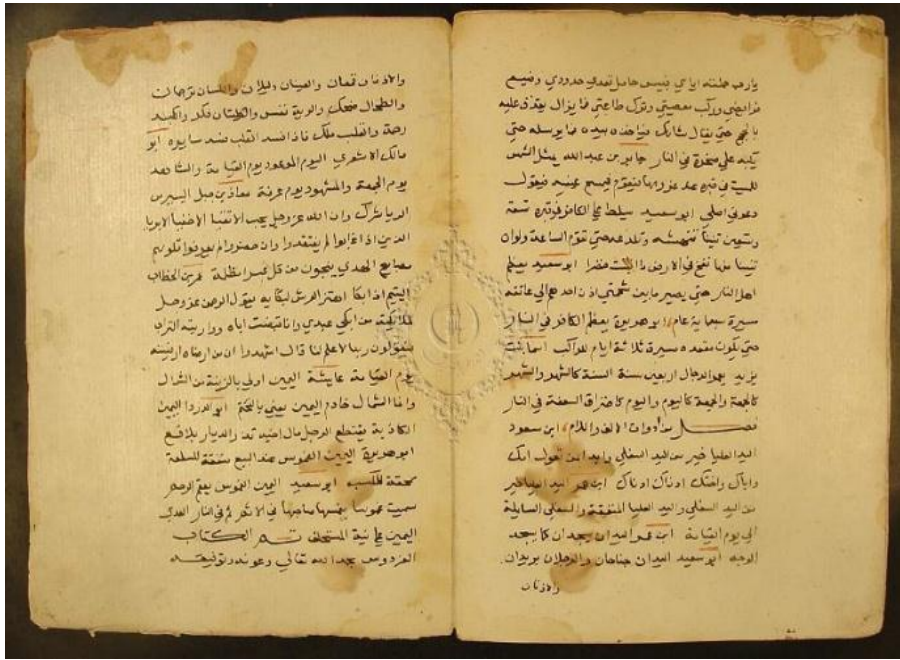 يارب حملته اياي فبيس حامل تعدي حدودي وضيع
فرايضي وركب معصيتي وترك طاعتي فما يزال يقذف عليه
بالحجج حتى يقال شانك فياخذه بيده فما يرسله حتى
يكبه على صخرة في النار جابر بن عبد الله يمثل الشمس
للميت في قبره عند غروبها فيقوم فيمسح عينيه فيقول
دعوني اصلي ابو سعيد يسلط على الكافر في قبره تسعة
وتسعين تنينا تنهشه وتلدغه حتى تقوم الساعة ولو ان
تنينا منها نفخ في الارض ما انبتت خضرا ابو سعيد يعظم
اهل النار حتى يصير ما بين شحمتي اذن احدهم الى عاتقه
مسيرة سبعماية عام ابو هريرة يعظم الكافر في النار
حتى يكون مقعده مسيرة ثلاثة ايام للراكب اسما بنت
يزيد يمهر الدجال اربعين سنة السنة كالشهر والشهر
كالجمعة والجمعة كاليوم واليوم كاضراق السعفة في النار
فصل من ذوات الالف واللام ابن مسعود
اليد العليا خير من اليد السفلى وابدا بمن تعول امك
واباك واختك ادناك ادناك ابن عمر اليد العليا خير
من اليد السفلى واليد العليا المنفقة والسفلى السايلة
الى يوم القيامة ابن عمر اليدان يسجدان كما يسجد
الوجه ابو سعيد اليدان جناحان والرجلان بريدان
والاذنان
والاذنان قمعان والعينان دليلان واللسان ترجمان
والطحال ضحك والرية نفس والكليتان مكر والكبد
رحمة والقلب ملك فاذا فسد القلب فسد سايره ابو
مالك الاشعري اليوم الموعود يوم القيامة والشاهد
يوم الجمعة والمشهود يوم عرفة معاذ بن جبل اليسير من
الريا شرك وان الله عز وجل يحب الاتقيا الاخفيا الابريا
الذين اذا غابوا لم يفتقدوا وان حضروا لم يعرفوا قلوبهم
مصابيح الهدى ينجون من كل غبرا مظلمة عمر بن الخطاب
اليتيم اذا بكا اهتز العرش لبكايه يقول الرحمن عز وجل
ملايكته من ابكى عبدي وانا قبضت اباه وواريته التراب
فيقولون ربنا لا علم لنا قال اشهدوا ان من ارضاه ارضيته
يوم القيامة عايشة اليمين اولى بالزينة من الشمال
وانما الشمال خادم اليمين يعني بالتختم ابو الدردا اليمين
الكاذبة يقتطع الرجل مال اخيه تدر الديار بلاقع
ابو هريرة اليمين الغموس عند البيع منفقة للسلعة
ممحقة للكسب ابو سعيد اليمين الغموس
سميت غموسا يغمسها صاحبها في الاثم ثم في النار العدي
اليمين على نية المستحلف تم الكتاب
الفردوس بحمد الله تعالى وعونه وتوفيقه